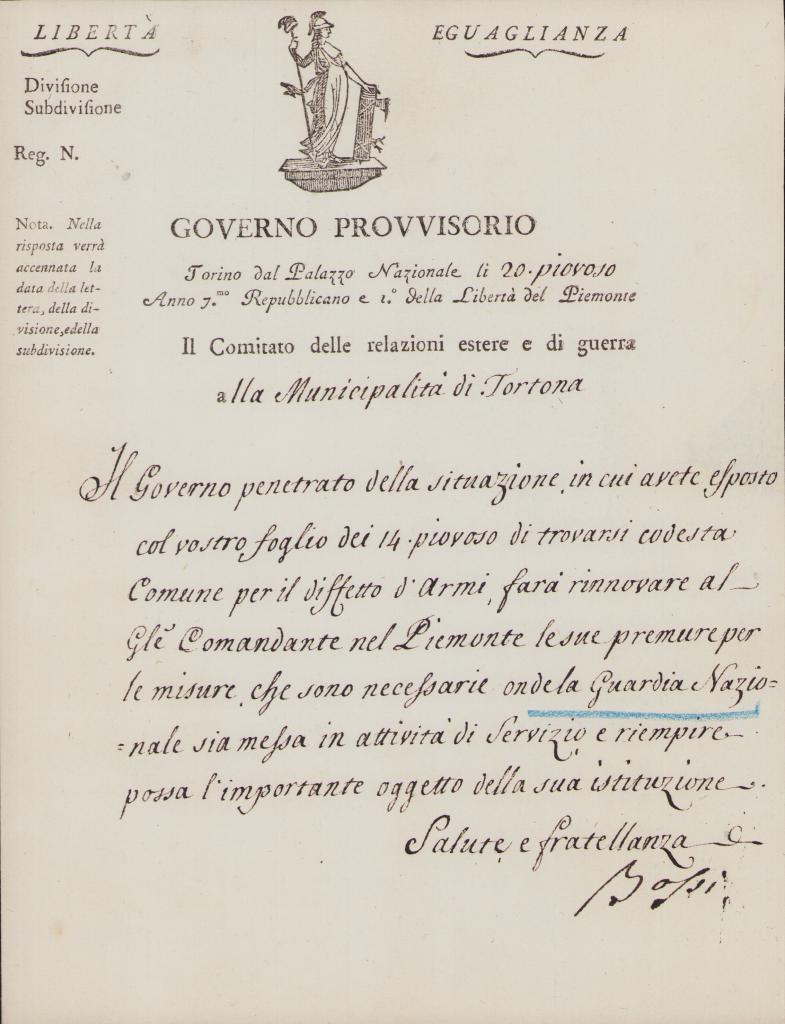 LIBERTÀ
EGUAGLIANZA
Diviſione
Subdiviſione
Reg. N.
Nota. Nella
risposta verrà
accennata la
data della let-
tera, della di-
visione, edella
subdivisione.
GOVERNO PROVVISORIO
Torino dal Palazzo Nazionale li 20. piovoso
Anno 7.mo Repubblicano e 1.o della Libertà del Piemonte
Il Comitato delle relazioni estere e di guerra
alla Municipalità di Tortona
Il Governo penetrato della situazione, in cui avete eſposto
col vostro foglio dei 14. piovoso di trovarsi codesta
Comune per il diffetto d'Armi, farà rinnovare al
Gle Comandante nel Piemonte le sue premure per
le misure, che sono neceſsarie onde la Guardia Nazio=
=nale sia meſsa in attività di Servizio e riempire
possa l'importante oggetto della sua istituzione.
Salute, e fratellanza
Boſsi